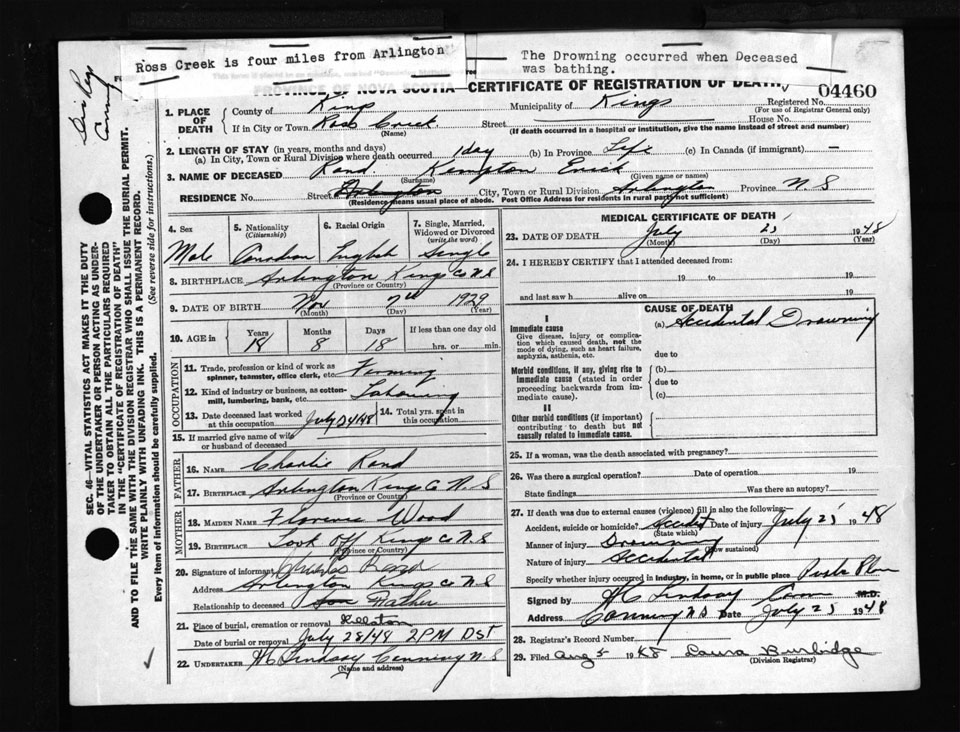 Ross Creek is four miles from Arlington
The Drowning occurred when Deceased
was bathing.
PROVINCE OF NOVA SCOTIA—CERTIFICATE OF REGISTRATION OF DEATH
04460
Registered No.
(For use of Registrar General only)
1. PLACE OF DEATH
County of Kings Municipality of Kings
If in City or Town Ross Creek Street House No.
(Name) (If death occurred in a hospital or institution, give the name instead of street and number)
2. LENGTH OF STAY (in years, months and days)
(a) In City, Town or Rural Division where death occurred 1 day (b) In Province Life (c) In Canada (if immigrant) —
3. NAME OF DECEASED Rand Kempton
(Surname) (Given name or names)
RESIDENCE No. Street Arlington City, Town or Rural Division Arlington Province N.S
(Residence means usual place of abode. Post Office Address for residents in rural parts not sufficient)
4. Sex Male
5. Nationality (Citizenship) Canadian
6. Racial Origin English
7. Single, Married, Widowed or Divorced (write the word) Single
8. BIRTHPLACE Arlington Kings Co N.S
(Province or Country)
9. DATE OF BIRTH Nov 7th 1929
(Month) (Day) (Year)
10. AGE in Years 18 Months 8 Days 18 If less than one day old
hrs. or min.
OCCUPATION
11. Trade, profession or kind of work as spinner, teamster, office clerk, etc. Farming
12. Kind of industry or business, as cotton-mill, lumbering, bank, etc. Laboring
13. Date deceased last worked at this occupation July 24/48
14. Total yrs. spent in this occupation
15. If married give name of wife or husband of deceased
FATHER
16. NAME Charlie Rand
17. BIRTHPLACE Arlington Kings Co N.S
(Province or Country)
MOTHER
18. MAIDEN NAME Florence Wood
19. BIRTHPLACE Look Off Kings Co N.S
(Province or Country)
20. Signature of informant Charles Rand
Address Arlington Kings Co N.S
Relationship to deceased Son Father
21. Place of burial, cremation or removal
Date of burial or removal July 28/48 2PM DST
22. UNDERTAKER H C Lindsay Canning N.S
(Name and address)
MEDICAL CERTIFICATE OF DEATH
23. DATE OF DEATH July 25 1948
(Month) (Day) (Year)
24. I HEREBY CERTIFY that I attended deceased from:
19 to 19
and last saw h alive on 19
CAUSE OF DEATH
I
Immediate cause
Give disease, injury or complication which caused death, not the mode of dying, such as heart failure, asphyxia, asthenia, etc.
(a) Accidental Drowning
due to
Morbid conditions, if any, giving rise to immediate cause (stated in order proceeding backwards from immediate cause).
(b)
due to
(c)
II
Other morbid conditions (if important) contributing to death but not causally related to immediate cause.
25. If a woman, was the death associated with pregnancy?
26. Was there a surgical operation? Date of operation 19
State findings Was there an autopsy?
27. If death was due to external causes (violence) fill in also the following:
Accident, suicide or homicide? Accident Date of injury July 25 1948
(State which)
Manner of injury Drowning
(How sustained)
Nature of injury Accidental
Specify whether injury occurred in industry, in home, or in public place
Signed by H C Lindsay M.D.
Address Canning N S Date July 25 1948
28. Registrar's Record Number
29. Filed Aug 5 1948 Laura Burbidge
(Division Registrar)
SEC. 46—VITAL STATISTICS ACT MAKES IT THE DUTY
OF THE UNDERTAKER OR PERSON ACTING AS UNDER-
TAKER TO OBTAIN ALL THE PARTICULARS REQUIRED
IN THE "CERTIFICATE OF REGISTRATION OF DEATH"
AND TO FILE THE SAME WITH THE DIVISION REGISTRAR WHO SHALL ISSUE THE BURIAL PERMIT.
WRITE PLAINLY WITH UNFADING INK. THIS IS A PERMANENT RECORD.
Every item of information should be carefully supplied. (See reverse side for instructions.)